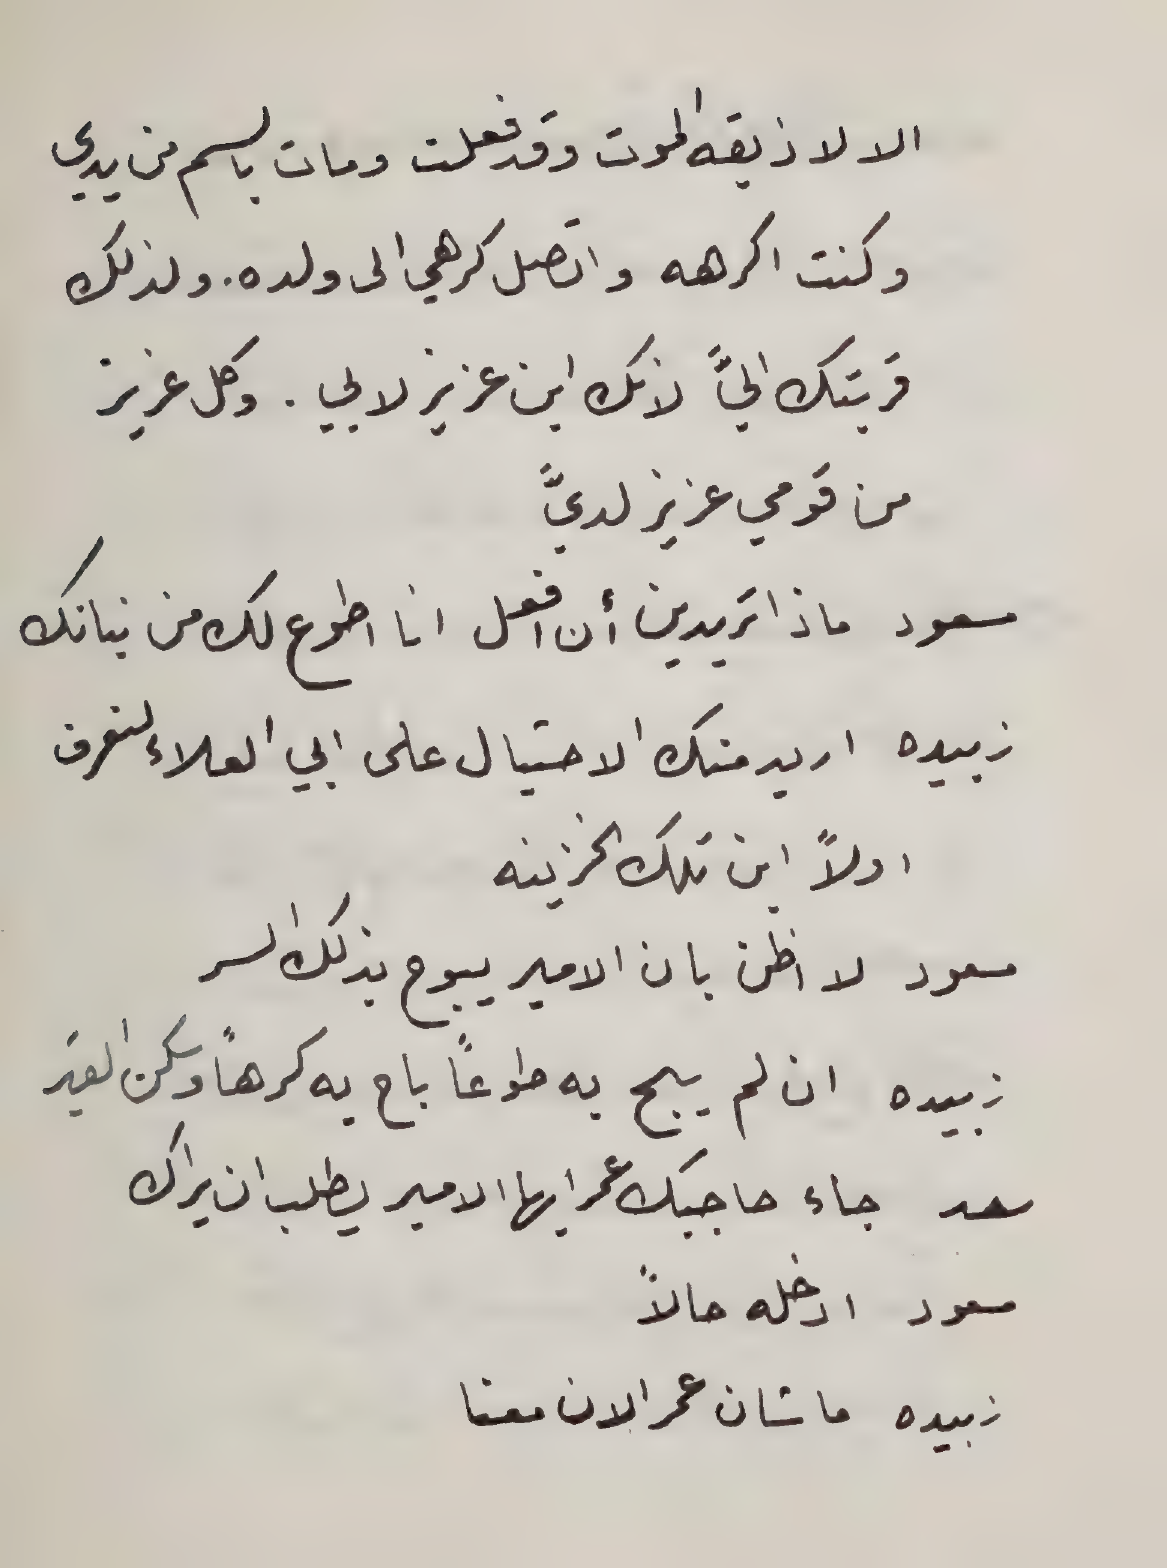 الا لاذيقه الموت وقد فعلت ومات بالسم من يدي
وكنت اكرهه واتصل كرهي الى ولده. ولذلك
قربتك اليَّ لانك ابن عزيز لابي . وكل عزيز
من قومي عزيز لديَّ
مسعود ماذا تريدين أن افعل انا اطوع لك من بنانك
زبيده اريد منك الاحتيال على ابي العلاء لنعرف
اولاً اين تلك الخزينه
مسعود لا اظن بان الامير يبوح بذلك السر
زبيده ان لم يبح به طوعاً باح به كرهاً ولكن القيد
سعد جاء حاجبك عمر ايها الامير يطلب ان يراك
مسعود ادخله حالاً
زبيده ما شان عمر الان معنا